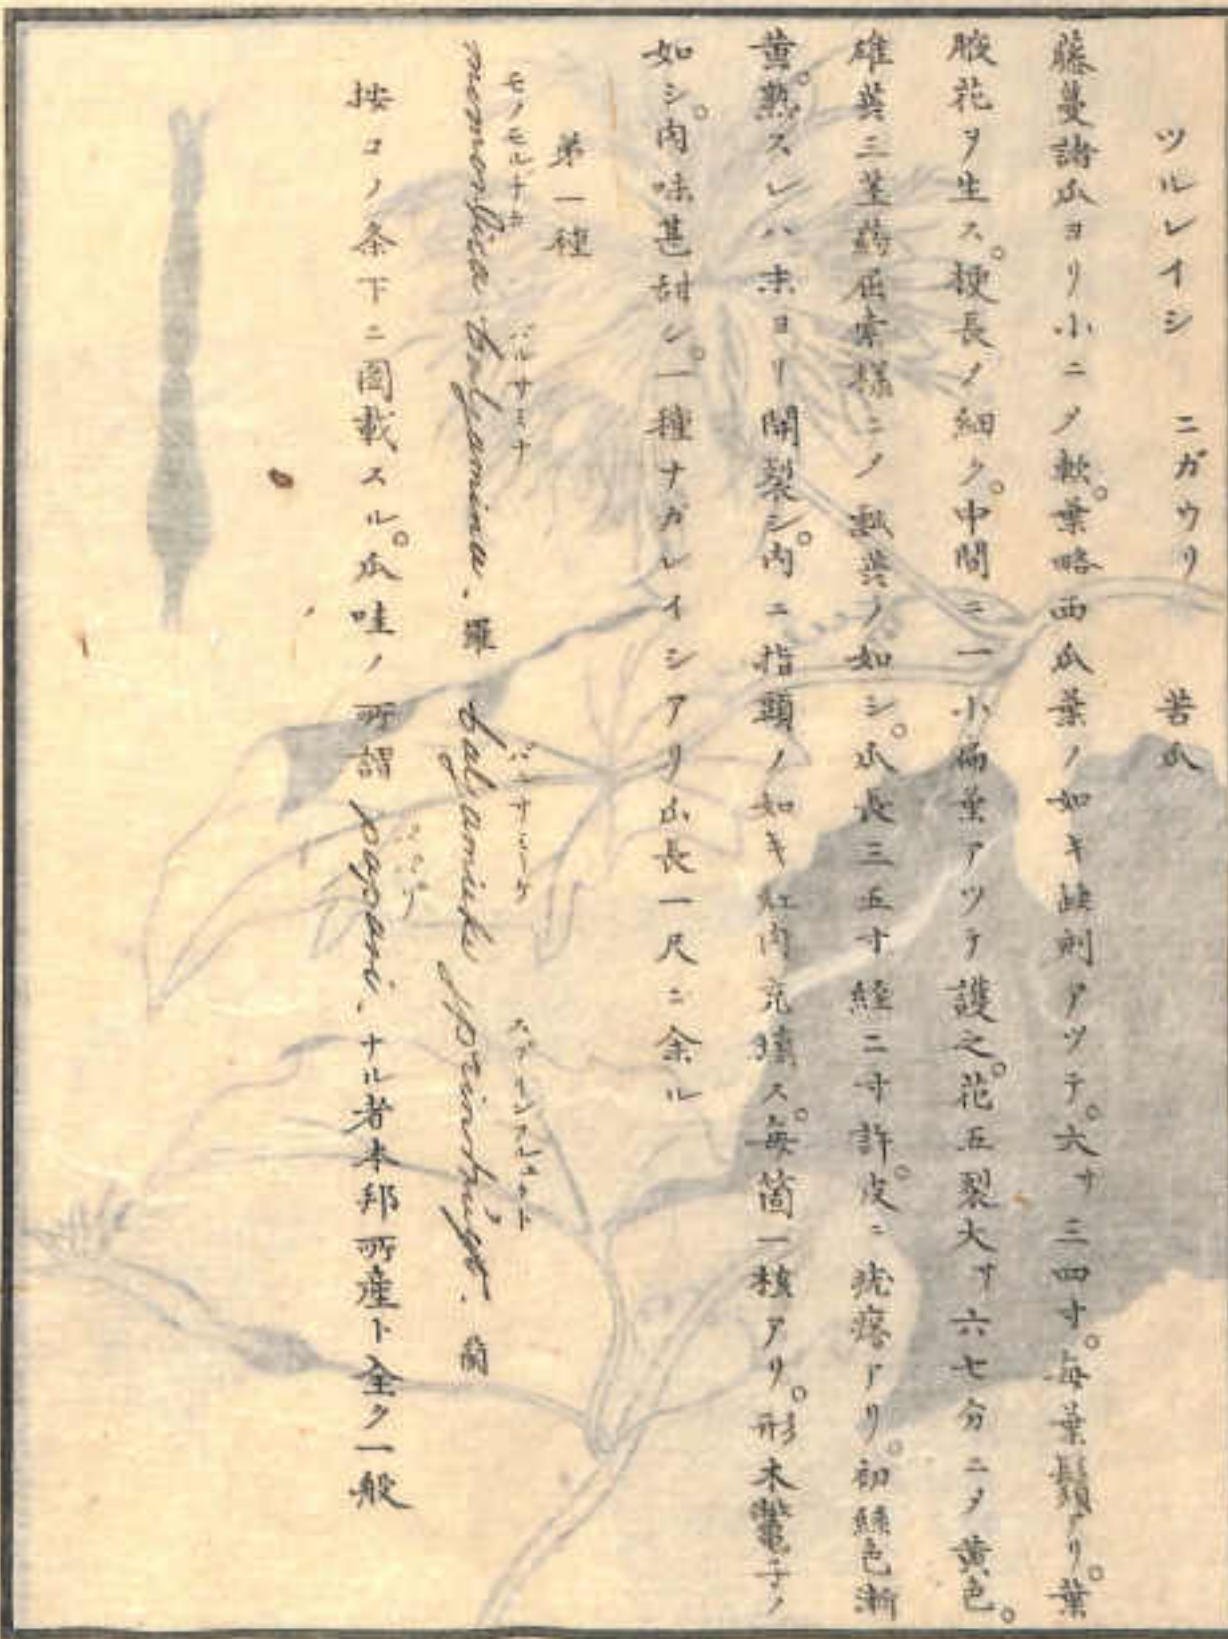 ツルレイシ　ニガウリ　苦瓜
藤蔓諸瓜ヨリ小ニ〆軟。葉略西瓜葉ノ如キ缺刻アツテ。大サ三四寸。毎葉鬚アリ。葉
腋花ヲ生ス。梗長ノ細ク。中間ニ一小扁葉アツテ護之。花五裂大サ六七分ニ〆黄色。
雄蕋三茎葯屈索様ニノ瓢蕋ノ如シ。瓜長三五寸経二寸許。皮ニ疣瘩アリ。初緑色漸
黄熟。スレハ末ヨリ開裂シ。内ニ指頭ノ如キ紅肉充塡ス。毎箇一核アリ。形木鼈子ノ
如シ。肉味甚甜シ。一種ナガレイシアリ瓜長一尺ニ余ル
第一種
モノモルヂカ バルサミナ バルサミーケ スプリンフルュクト
momordica balsamina. 羅 balsamieke springvrugt. 蘭
按コノ条下ニ圖載スル。瓜哇ノ所謂 パパリ papari. ナル者本邦所産ト全ク一般